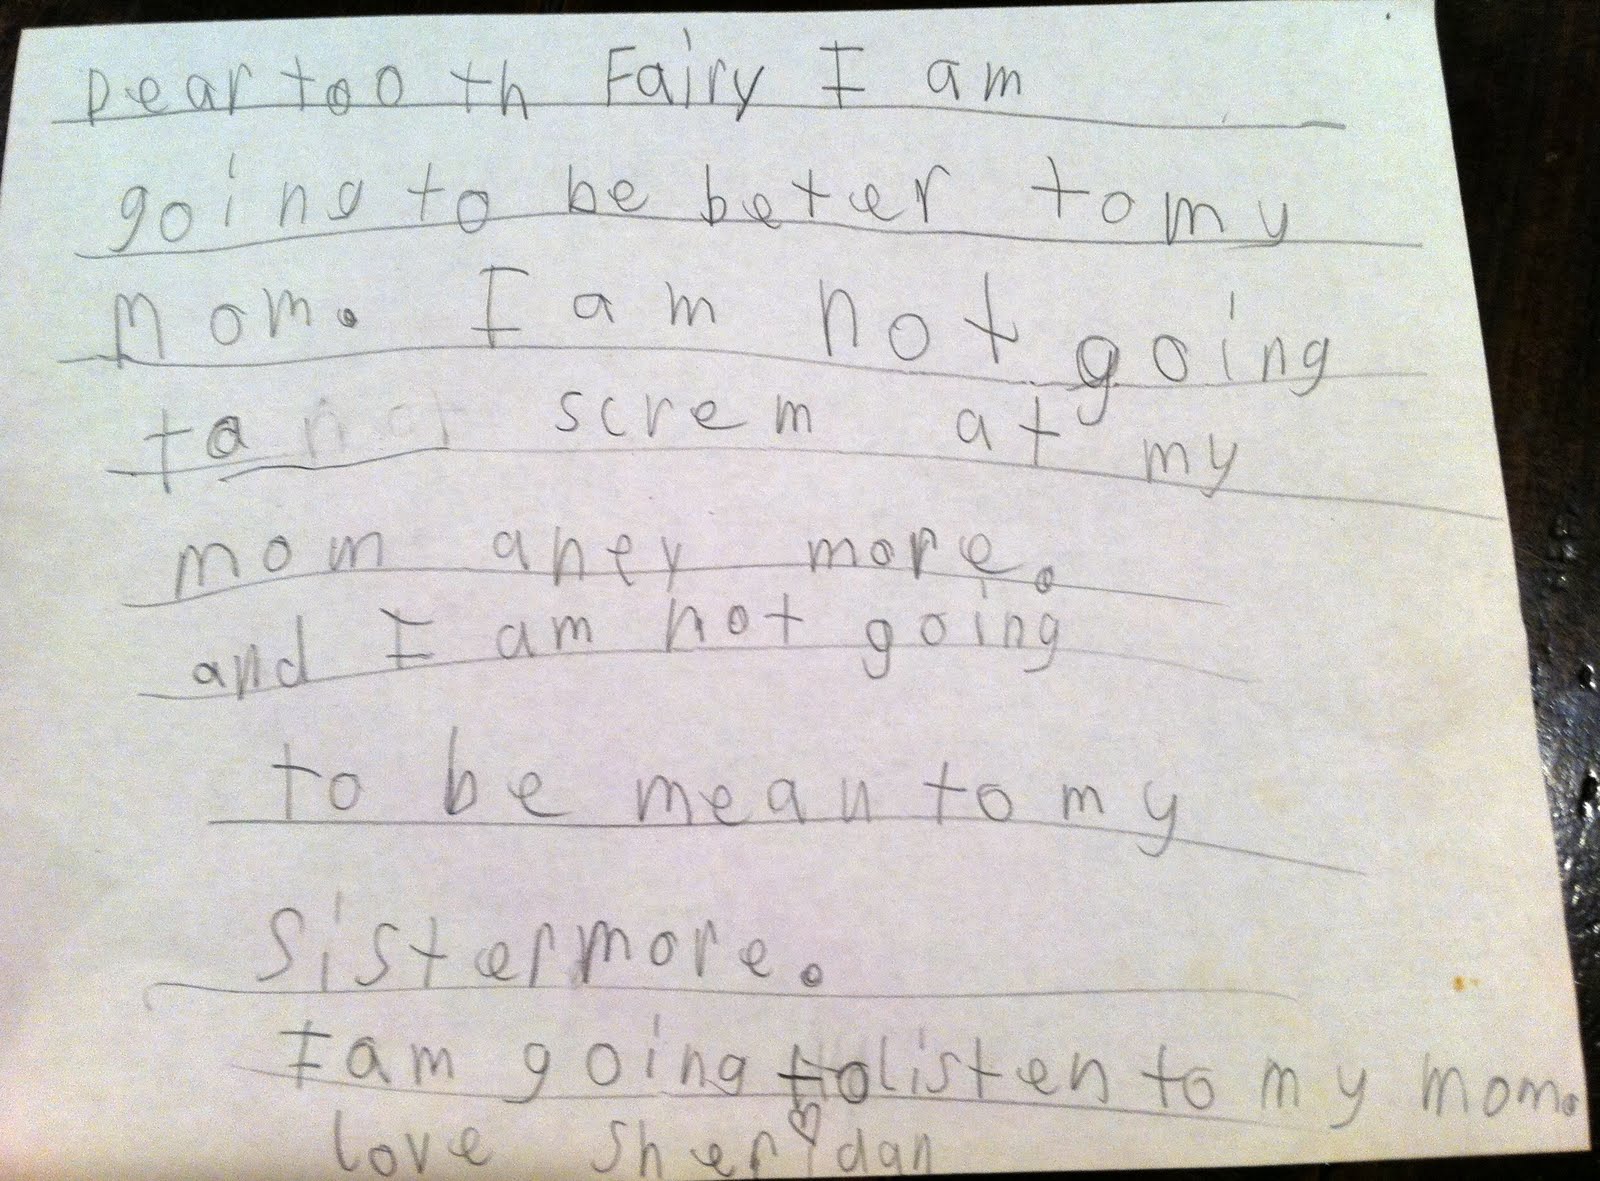 Dear tooth Fairy I am
going to be beter to my
mom. I am not going
to screm at my
mom aney more.
and I am not going
to be mean to my
sister more.
I am going to listen to my mom.
love Sheridan